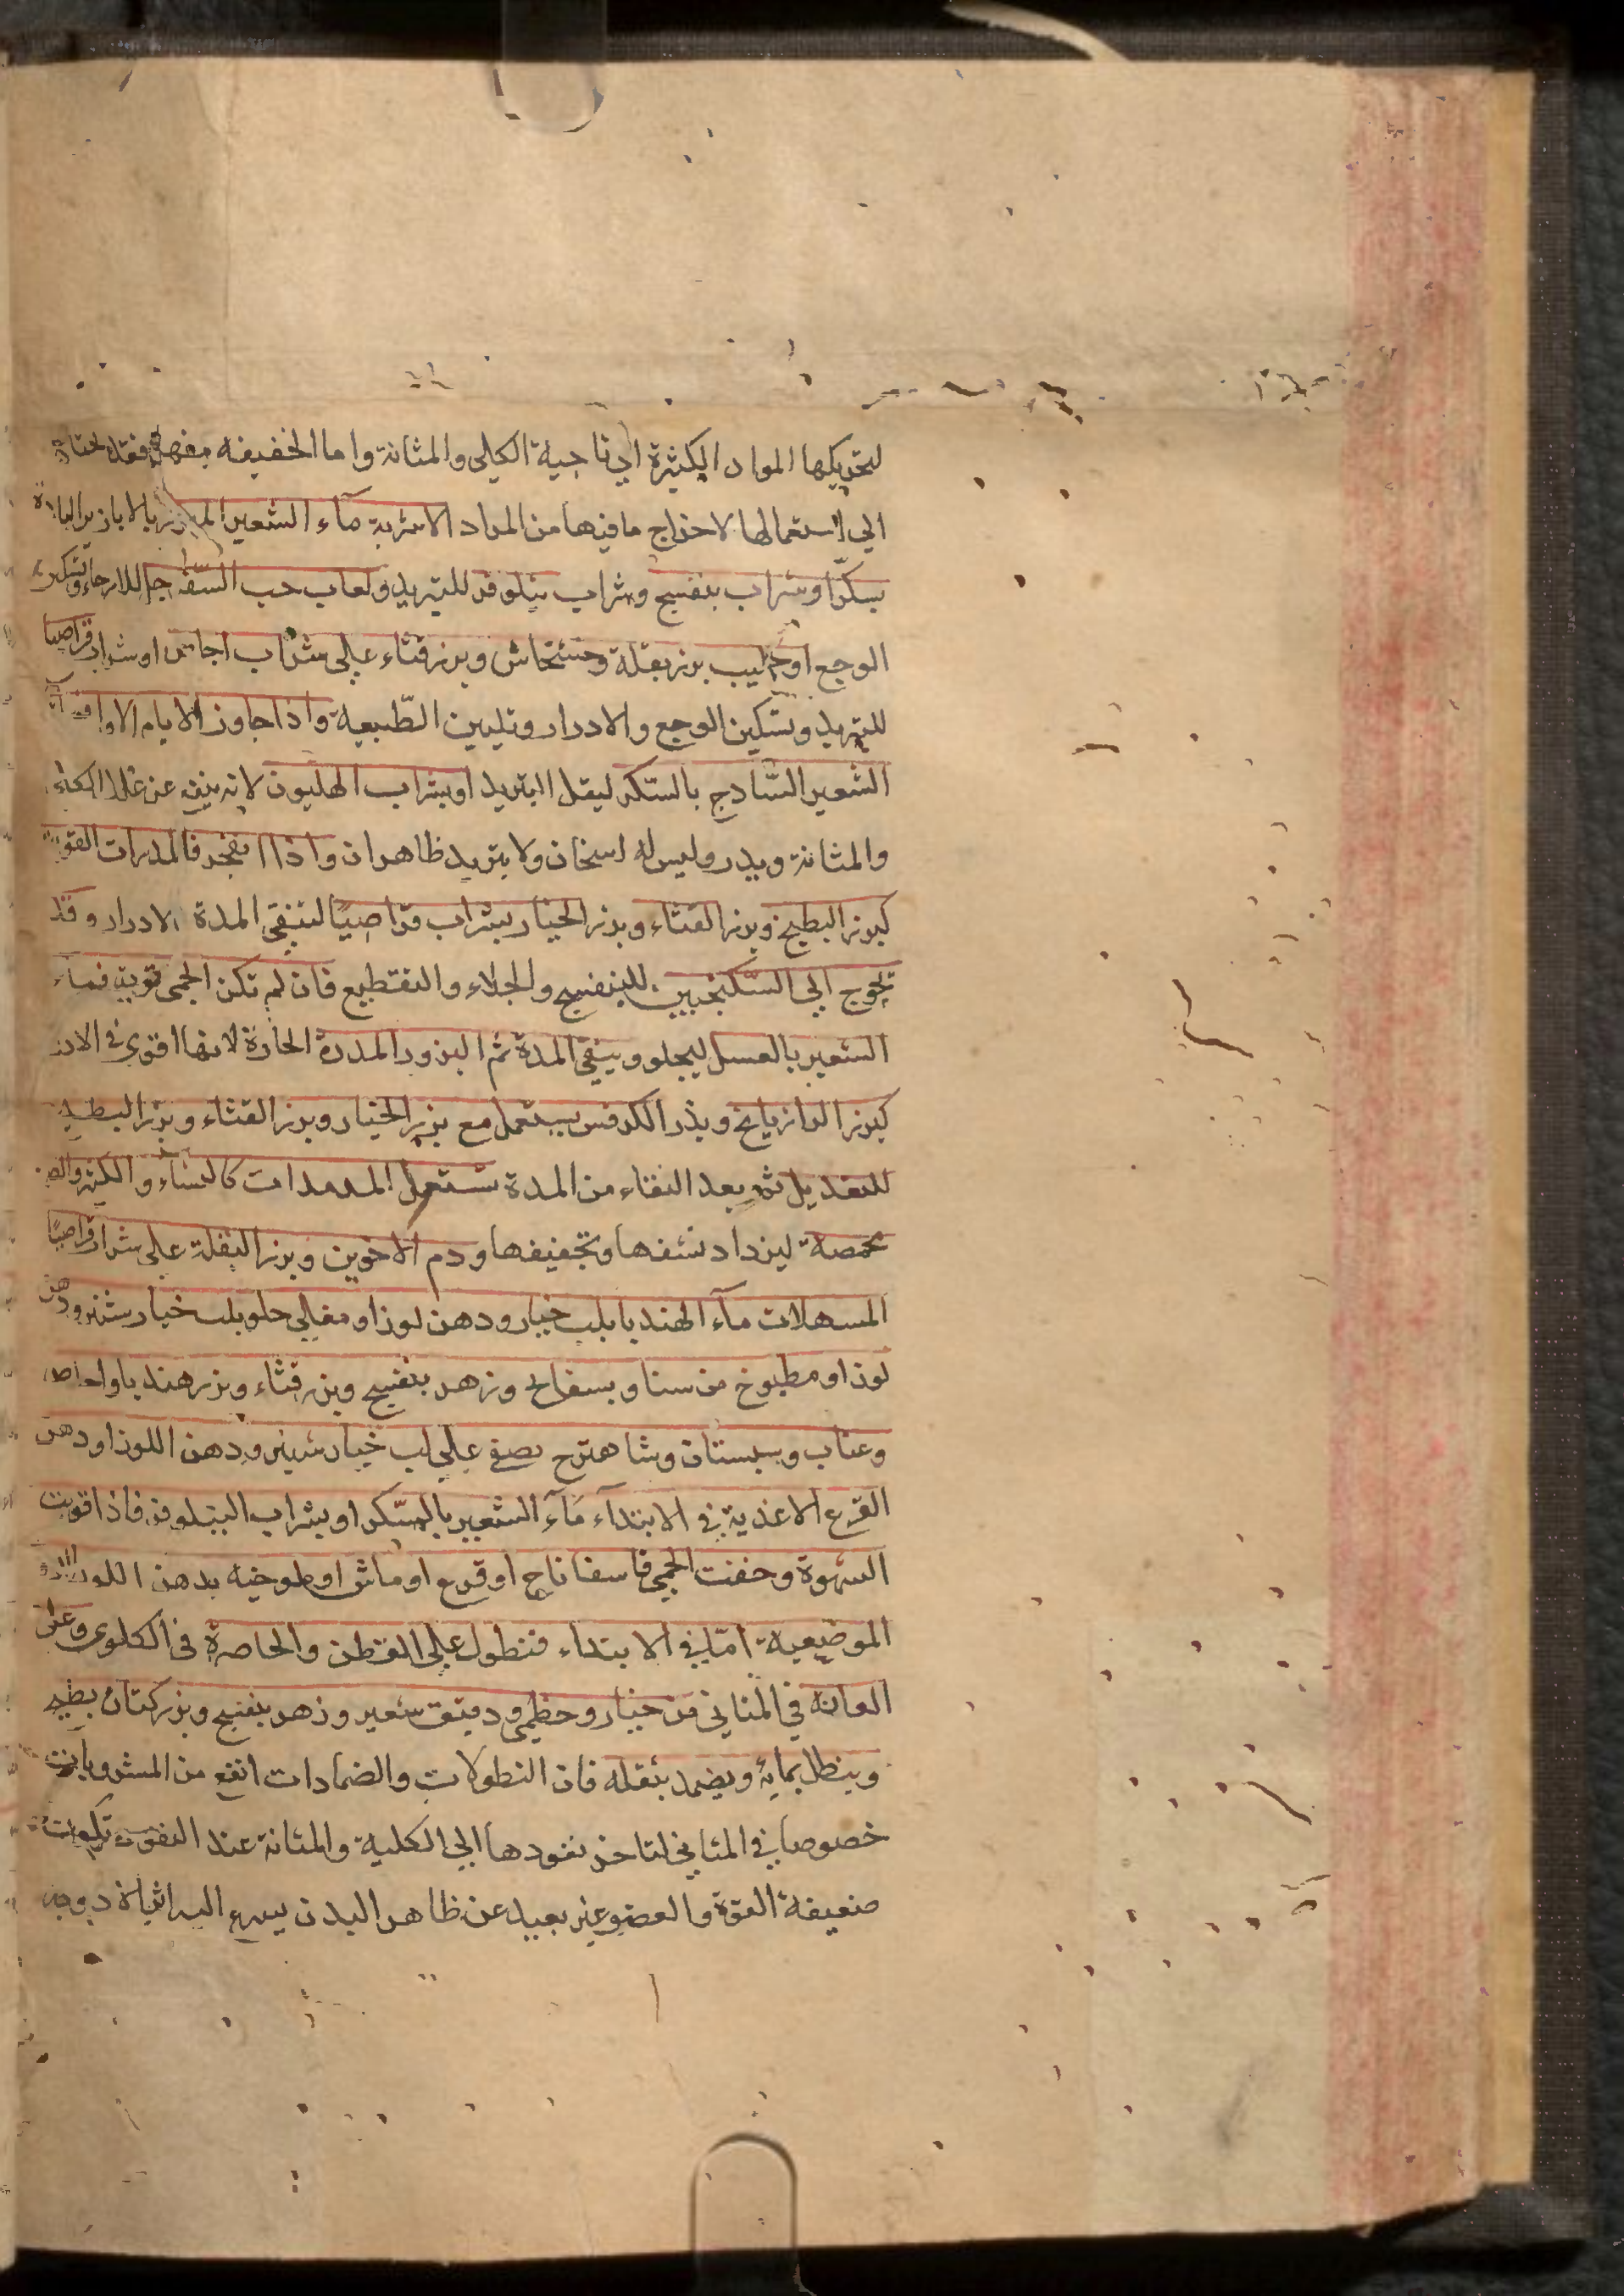 لتحريكها المواد الكثيرة الي ناحية الكلي والمثانة واما الخفيفه فقد يحتاج
الي استعمالها لاخراج ما فيها من المواد الاشربة مآء الشعير المبزر بالابازير الباردة
بسكر او شراب بنفسج وشراب نيلوفر للتبريد ولعاب حب السفرجل للارخاء وتسكين
الوجع او حليب بزر بقلة وخشخاش وبزر قثاء علي شراب اجاص او شراب قراصيا
للتبريد وتسكين الوجع والادرار وتليين الطبيعة واذا جاوز الايام الاول فمآء
الشعير الساذج بالسكر ليقل التبريد او بشراب الهليون لانه ينفع علل الكلي
والمثانة ويدر وليس له اسخان ولا تبريد ظاهران واذا انفجر فالمدرات القوية
كبزر البطيخ وبزر القثاء وبزر الخيار بشراب قراصيا لتنقي المدة بالادرار وقد
تحوج الي السكنجبين للتنضيج والجلاء والتقطيع فان لم تكن الحمي قوية فمآء
الشعير بالعسل ليجلو وينقي المدة ثم البزور المدرة الحارة لانها اقوي في الادر
كبزر الرازيانج وبذر الكرفس يستعمل مع بزر الخيار وبزر القثاء وبزر البطيخ
للتعديل ثم بعد النقاء من المدة تستعمل المدملات كالنشاء والكثيرا والصمغ
محمصة ليزداد نشفها وتجفيفها ودم الاخوين وبزر البقلة علي شراب قراصيا
المسهلات مآء الهندبا بلب خيار ودهن لوز او مغالي حلو بلب خيار شنبر ودهن
لوز او مطبوخ من سنا وبسفايج وزهر بنفسج وبزر قثاء وبزر هندبا واجاص
وعناب وسبستان وشاهترج يصفي علي لب خيار شنبر ودهن اللوز او دهن
القرع الاغذية في الابتدآء مآء الشعير بالسكر او بشراب النيلوفر فاذا قويت
الشهوة وخفت الحمي فاسفاناج او قرع او ماش او ملوخيه بدهن اللوز الادوية
الموضعية اما في الابتداء فنطول علي القطن والخاصرة في الكلوي وعلي
العانة في المثاني من خيار وخطمي ودقيق شعير وزهر بنفسج وبزر كتان يطبخ
وينطل بمايه ويضمد بثفله فان النطولات والضمادات انفع من المشروبات
خصوصا في المثاني لتاخر نفودها الي الكلية والمثانة عند النفوذ تكون
ضعيفة القوة والعضو غير بعيد عن ظاهر البدن يسرع اليه اثر الادوية